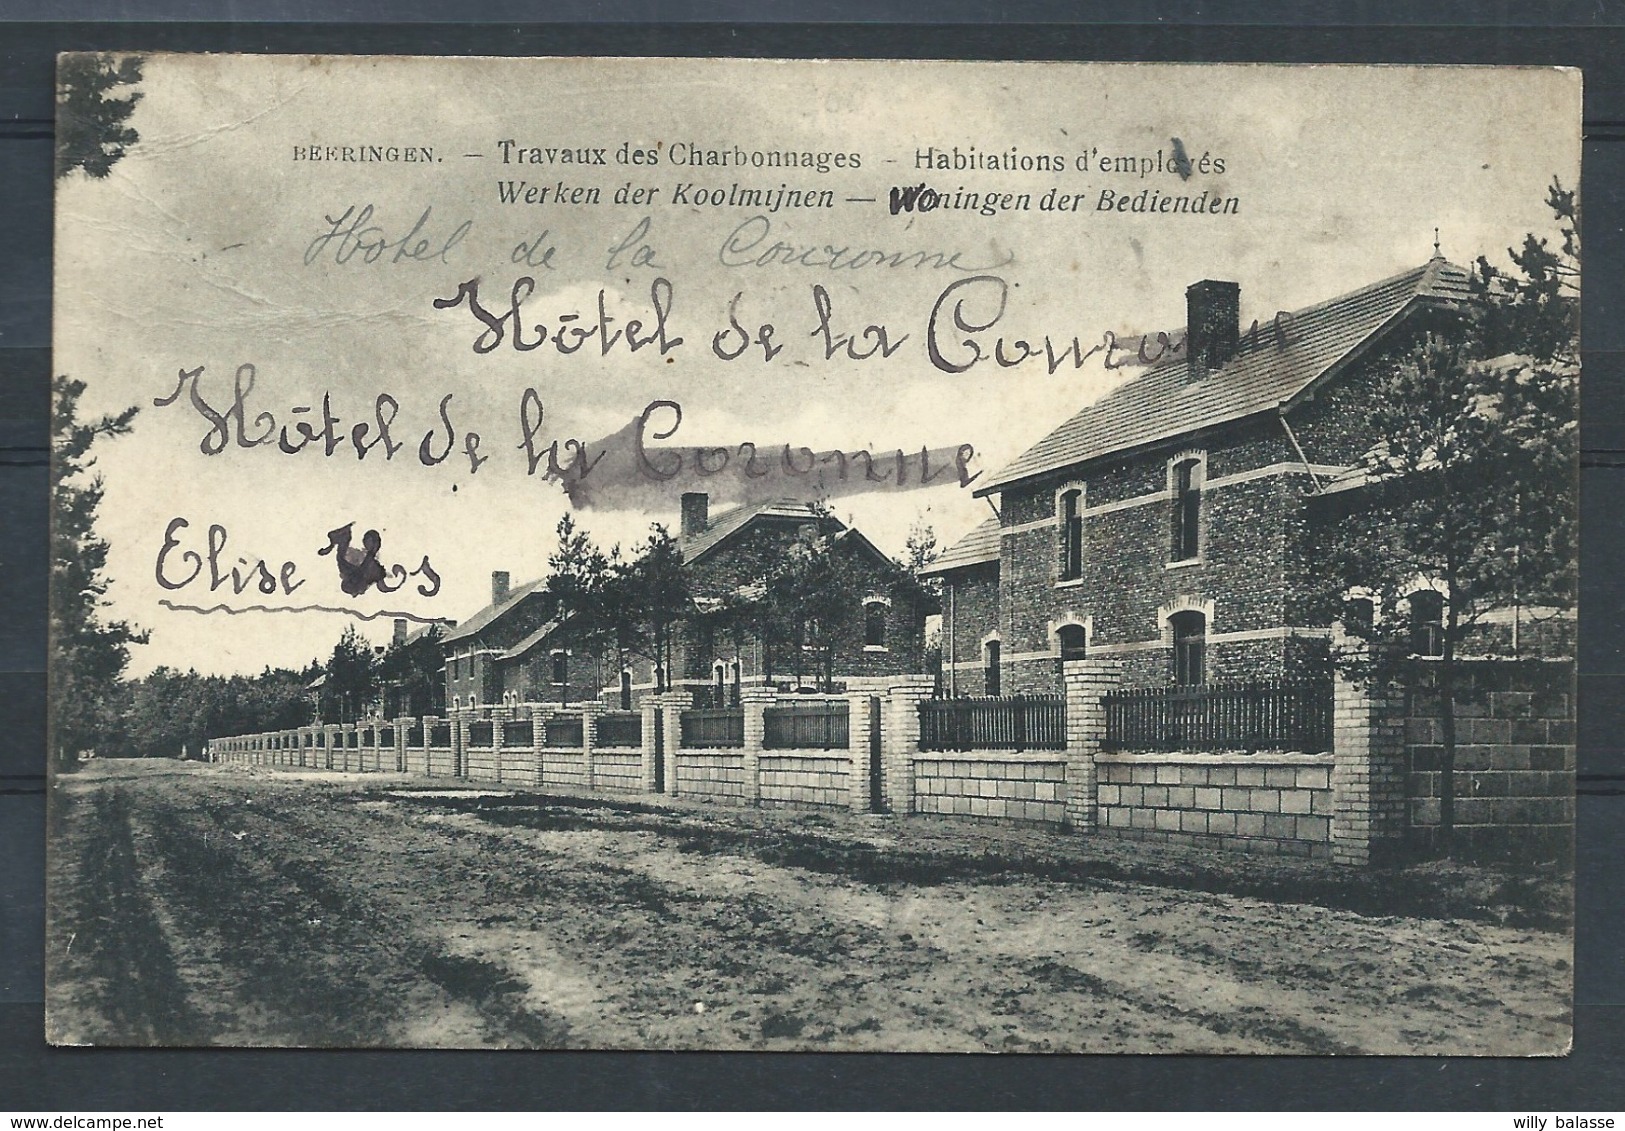 BEERINGEN. — Travaux des Charbonnages — Habitations d'employés
Werken der Koolmijnen — Woningen der Bedienden
Hotel de la Couronne
Hôtel de la Couronne
Hôtel de la Coronne
Elise Vos
willy balasse